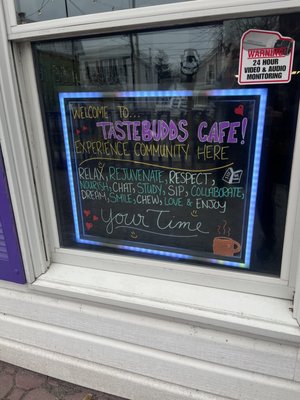 WARNING
24 HOUR
VIDEO & AUDIO
MONITORING
WELCOME TO...
TASTEBUDDS CAFE!
EXPERIENCE COMMUNITY HERE
RELAX, REJUVENATE, RESPECT,
NOURISH, CHAT, STUDY, SIP, COLLABORATE,
DREAM, SMILE, CHEW, LOVE & ENJOY
Your Time